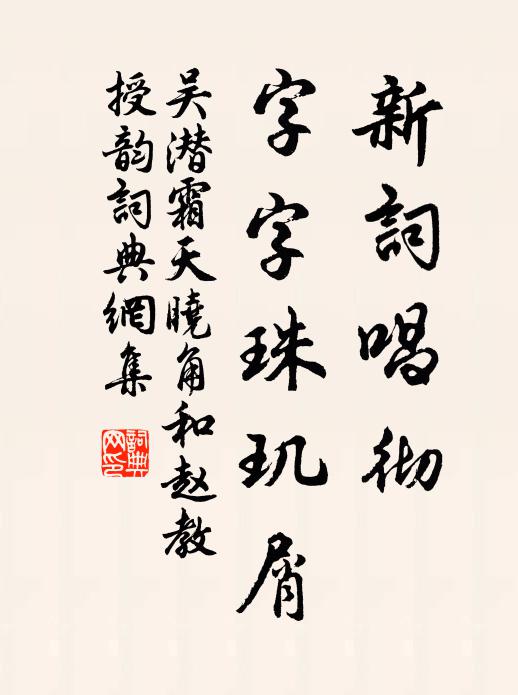 新詞唱彻
字字珠玑屑
吴潜霜天曉角和赵教
授韵詞典網集
詞典网印